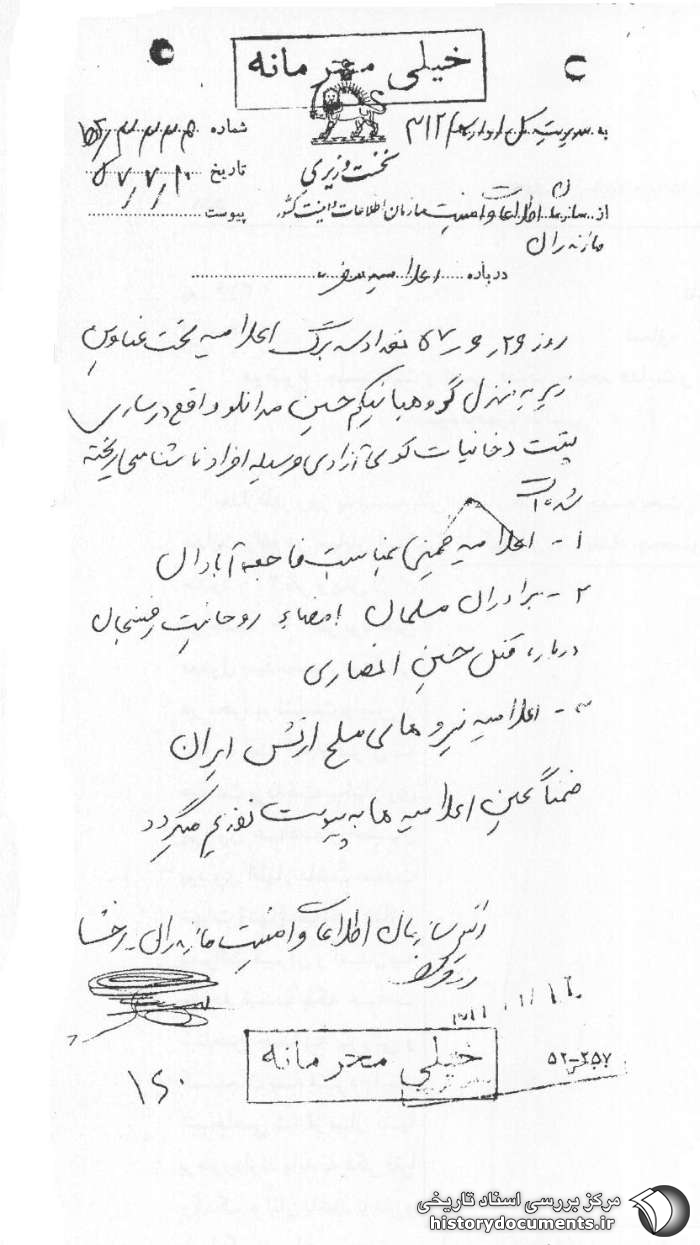 خیلی محرمانه
به مدیریت کل اداره سوم ۳۱۲
شماره
نخست وزیری
تاریخ ۵۷/۷/۱۰
از سازمان اطلاعات و امنیت سازمان اطلاعات و امنیت کشور
پیوست
مازندران
درباره اعلامیه مضره
روز ۲۶ر۶ر۵۷ تعداد سه برگ اعلامیه تحت عناوین
زیر به منزل گروهبانیکم حسین مدانلو واقع در ساری
پشت دخانیات کوی آزادی وسیله افراد ناشناسی ریخته
شده است
۱- اعلامیه خمینی بمناسبت فاجعه آبادان
۲- برادران مسلمان بامضاء روحانیت رفسنجان
درباره قتل حسین انصاری
۳- اعلامیه نیروهای مسلح ارتش ایران
ضمناً عین اعلامیه ها به پیوست تقدیم میگردد
رئیس سازمان اطلاعات و امنیت مازندران
خیلی محرمانه
۵۲-۲۵۷
۱۶۰
مرکز بررسی اسناد تاریخی
historydocuments.ir